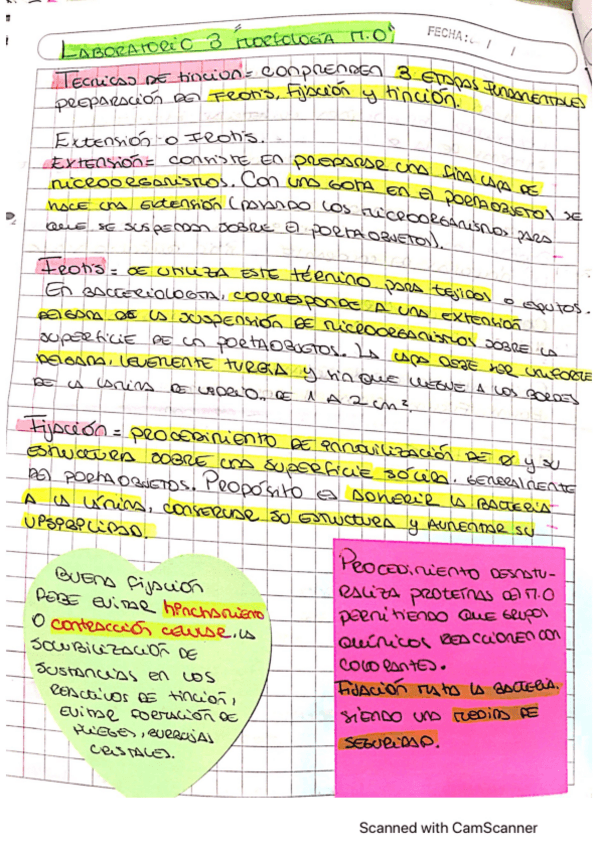 LABORATORIO 3 "MORFOLOGÍA M.O"
FECHA: / /
TECNICAS DE TINCIÓN = COMPRENDEN 3 ETAPAS FUNDAMENTALES
PREPARACIÓN DEL FROTIS, FIJACIÓN Y TINCIÓN.
EXTENSIÓN O FROTIS.
EXTENSIÓN = CONSISTE EN PREPARAR UNA FINA CAPA DE
MICROORGANISMOS. CON UNA GOTA EN EL PORTAOBJETOS SE
HACE UNA EXTENSIÓN (PASANDO LOS MICROORGANISMOS PARA
QUE SE SUSPENDAN SOBRE EL PORTAOBJETOS).
FROTIS = SE UTILIZA ESTE TÉRMINO PARA TEJIDOS O
EN BACTERIOLOGÍA, CORRESPONDE A UNA EXTENSIÓN
DELGADA DE LA SUSPENSIÓN DE MICROORGANISMOS SOBRE LA
SUPERFICIE DE UN PORTAOBJETOS. LA CAPA DEBE SER UNIFORME
DELGADA, LEVEMENTE TURBIA Y SIN QUE LLEGUE A LOS BORDES
DE LA LÁMINA DE VIDRIO, DE 1 A 2 CM².
FIJACIÓN = PROCEDIMIENTO DE INMOVILIZACIÓN DE Y SU
ESTRUCTURA SOBRE UNA SUPERFICIE SÓLIDA, GENERALMENTE
DEL PORTAOBJETOS. PROPÓSITO ES ADHERIR LA BACTERIA
A LA LÁMINA, CONSERVAR SU ESTRUCTURA Y AUMENTAR SU
BUENA FIJACIÓN
DEBE EVITAR HINCHAMIENTO
O CONTRACCIÓN CELULAR, LA
SOLUBILIZACIÓN DE
SUSTANCIAS EN LOS
REACTIVOS DE TINCIÓN,
EVITAR FORMACIÓN DE
PLIEGES, BURBUJAS
CRISTALES.
PROCEDIMIENTO DESNATU-
RALIZA PROTEINAS DEL M.O
PERMITIENDO QUE GRUPOS
QUÍMICOS REACCIONEN CON
COLORANTES.
FIJACIÓN MATA LA BACTERIA,
SIENDO UNA MEDIDA DE
SEGURIDAD.
Scanned with CamScanner